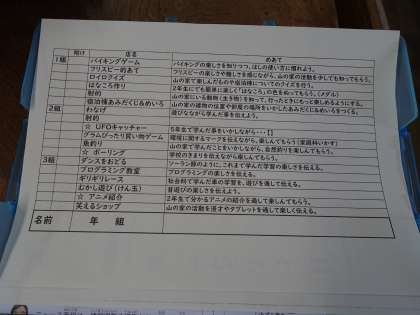 助け 店名 めあて
1組 バイキングゲーム バイキングの楽しさを知りつつ、はしの使い方に慣れよう。
フリスビー的あて フリスビーの楽しさや難しさを感じながら、山の家の活動を少しでも知ってもらう。
ロイロクイズ 山の家で楽しんだものや宿泊棟についてのクイズを行う。
はなころ作り 2年生にでも簡単に楽しく「はなころ」の色をぬってもらう。(メダル)
射的 山の家にいる動物(生き物)を知って、行ったときにもっと楽しめるようにする。
宿泊棟あみだくじ&めいろ 山の家の建物の位置や部屋の場所をいかしたあみだくじ&めいろをつくる。
2組 わなげ 遊びながら学んだ事を伝えよう。
射的
☆ UFOキャッチャー 5年生で学んだ事をいかしながら・・・【】
グラムぴったり買い物ゲーム 環境に関するマークを伝えながら、楽しんでもらう(家庭科いかす)
魚釣り 山の家で学んだことをいかしながら、自然釣りを楽しんでもらう。
☆ ボーリング 学校のきまりを伝えながら楽しんでもらう。
3組 ダンスをおどる ソーラン節のように、これまで学んだ学習の楽しさを伝える。
プログラミング教室 プログラミングの楽しさを伝える。
ギリギリレース 社会科で学んだ車の学習を、遊びを通して伝える。
むかし遊び(けん玉) 昔遊びの楽しさを伝えよう。
☆ アニメ紹介 2年生で分かるアニメの紹介を通して楽しんでもらう。
笑えるショップ 山の家の活動を漫才やタブレットを通して楽しく伝える。
名前 年 組